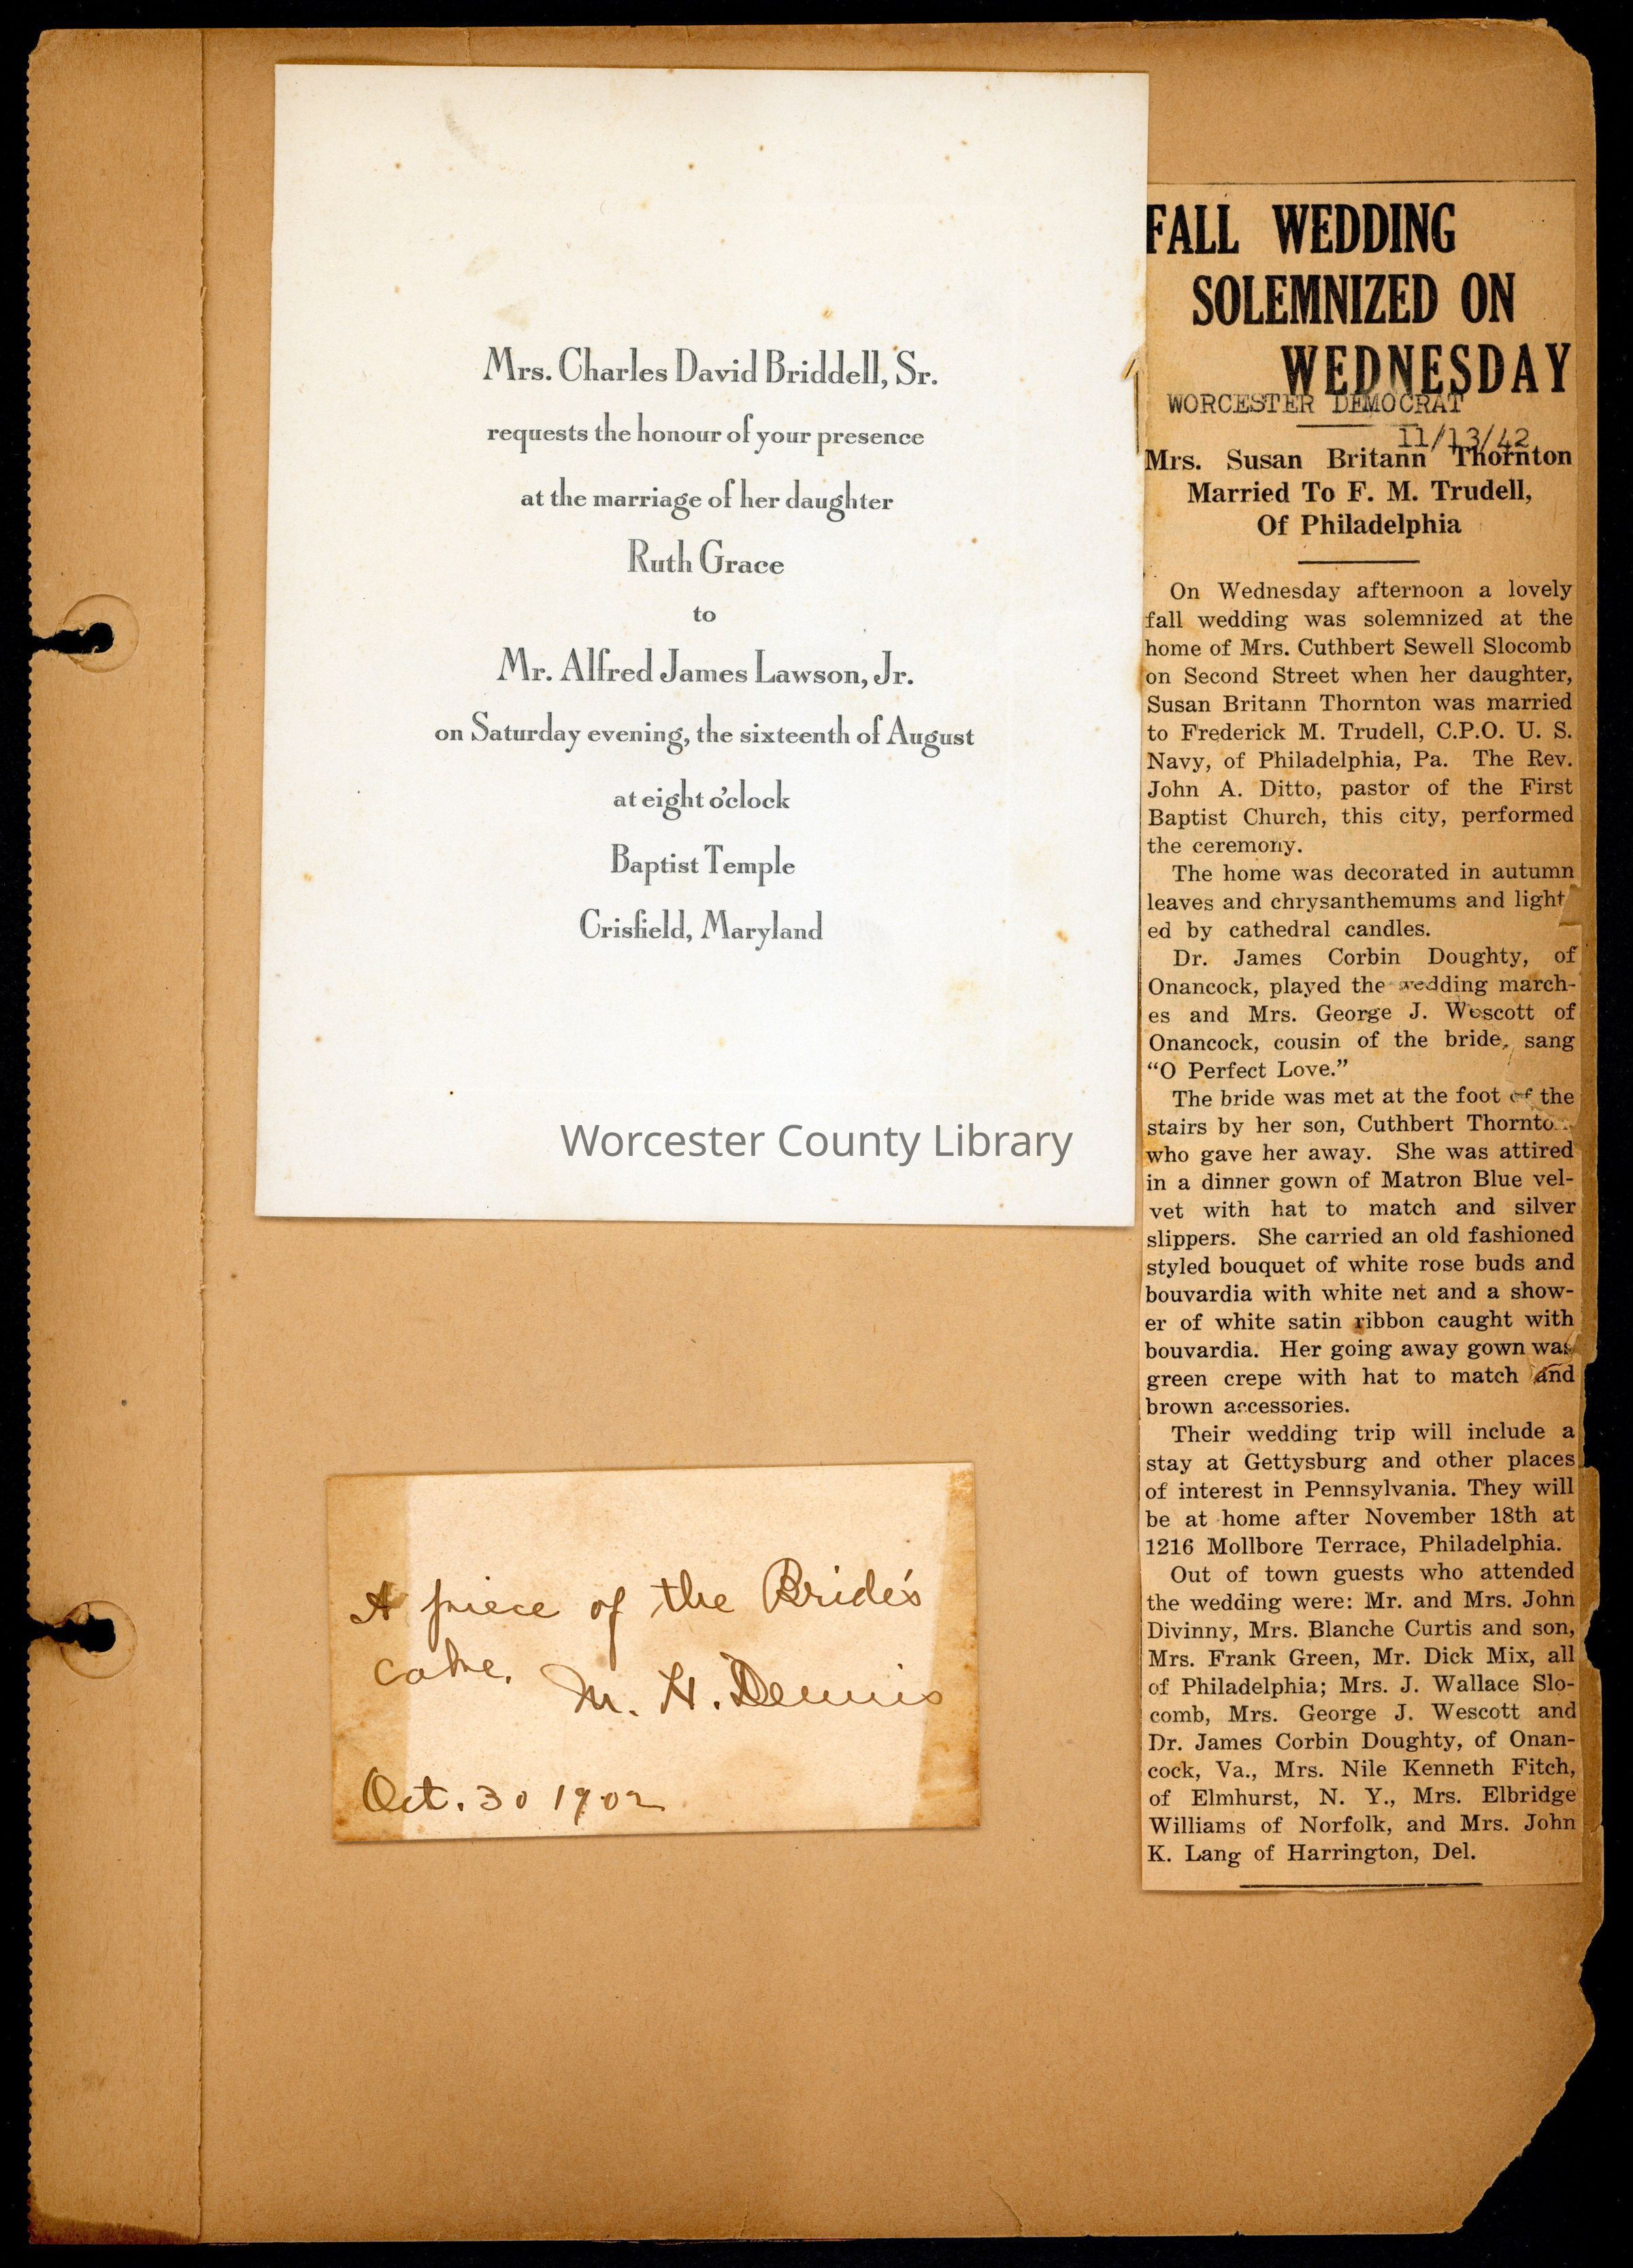 Mrs. Charles David Briddell, Sr.
requests the honour of your presence
at the marriage of her daughter
Ruth Grace
to
Mr. Alfred James Lawson, Jr.
on Saturday evening, the sixteenth of August
at eight o'clock
Baptist Temple
Crisfield, Maryland
Worcester County Library
A piece of the Bride's
cake.
M. H. Dennis
Oct. 30 1902
FALL WEDDING
SOLEMNIZED ON
WEDNESDAY
WORCESTER DEMOCRAT
11/13/42
Mrs. Susan Britann Thornton
Married To F. M. Trudell,
Of Philadelphia
On Wednesday afternoon a lovely
fall wedding was solemnized at the
home of Mrs. Cuthbert Sewell Slocomb
on Second Street when her daughter,
Susan Britann Thornton was married
to Frederick M. Trudell, C.P.O. U. S.
Navy, of Philadelphia, Pa. The Rev.
John A. Ditto, pastor of the First
Baptist Church, this city, performed
the ceremony.
The home was decorated in autumn
leaves and chrysanthemums and light
ed by cathedral candles.
Dr. James Corbin Doughty, of
Onancock, played the wedding march-
es and Mrs. George J. Wescott of
Onancock, cousin of the bride, sang
“O Perfect Love.”
The bride was met at the foot of the
stairs by her son, Cuthbert Thornto
who gave her away. She was attired
in a dinner gown of Matron Blue vel-
vet with hat to match and silver
slippers. She carried an old fashioned
styled bouquet of white rose buds and
bouvardia with white net and a show-
er of white satin ribbon caught with
bouvardia. Her going away gown was
green crepe with hat to match and
brown accessories.
Their wedding trip will include a
stay at Gettysburg and other places
of interest in Pennsylvania. They will
be at home after November 18th at
1216 Mollbore Terrace, Philadelphia.
Out of town guests who attended
the wedding were: Mr. and Mrs. John
Divinny, Mrs. Blanche Curtis and son,
Mrs. Frank Green, Mr. Dick Mix, all
of Philadelphia; Mrs. J. Wallace Slo-
comb, Mrs. George J. Wescott and
Dr. James Corbin Doughty, of Onan-
cock, Va., Mrs. Nile Kenneth Fitch,
of Elmhurst, N. Y., Mrs. Elbridge
Williams of Norfolk, and Mrs. John
K. Lang of Harrington, Del.